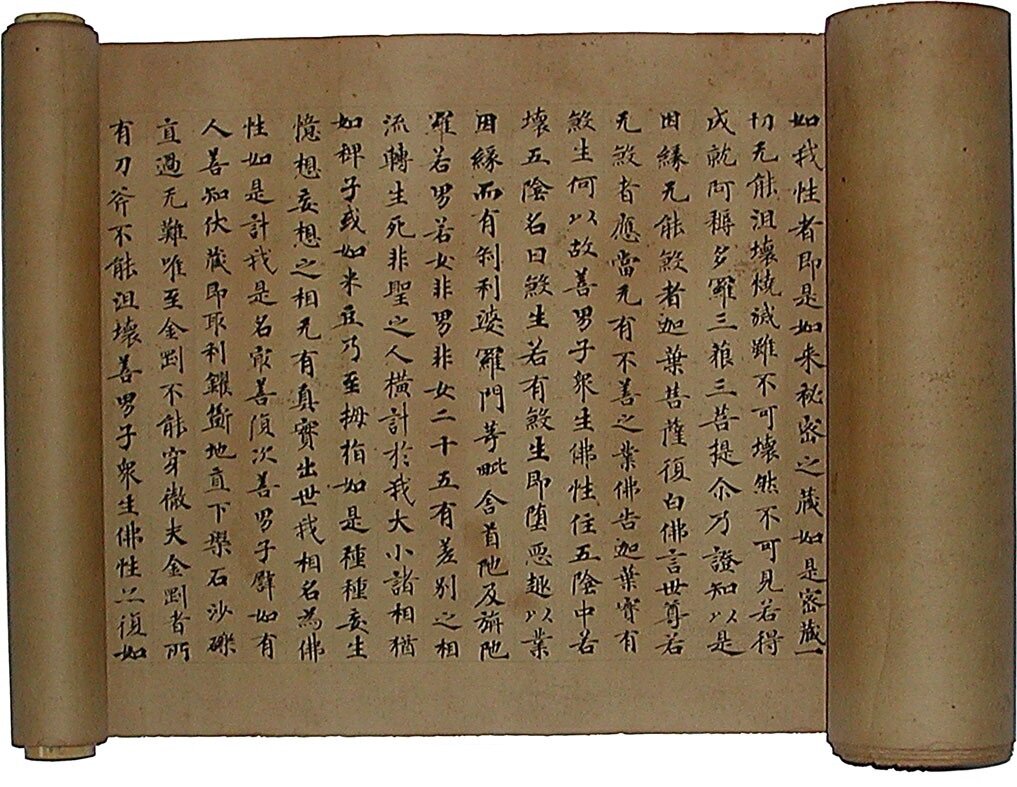 如我性者即是如来秘密之藏如是密藏一
切无能沮壞燒滅雖不可壞然不可見若得
成就阿耨多羅三藐三菩提尒乃證知以是
因緣无能煞者迦葉菩薩復白佛言世尊若
无煞者應當无有不善之業佛告迦葉實有
煞生何以故善男子衆生佛性住五陰中若
壞五陰名曰煞生若有煞生即堕惡趣以業
因緣而有刹利婆羅門等毗舍首陁及旃陁
羅若男若女非男非女二十五有差別之相
流轉生死非聖之人橫計於我大小諸相猶
如稗子或如米豆乃至拇指如是種種妄生
憶想妄想之相无有真實出世我相名為佛
性如是計我是名㝡善復次善男子譬如有
人善知伏藏即取利钁斲地直下槃石沙礫
直過无難唯至金剛不能穿徹夫金剛者所
有刀斧不能沮壞善男子衆生佛性亦復如